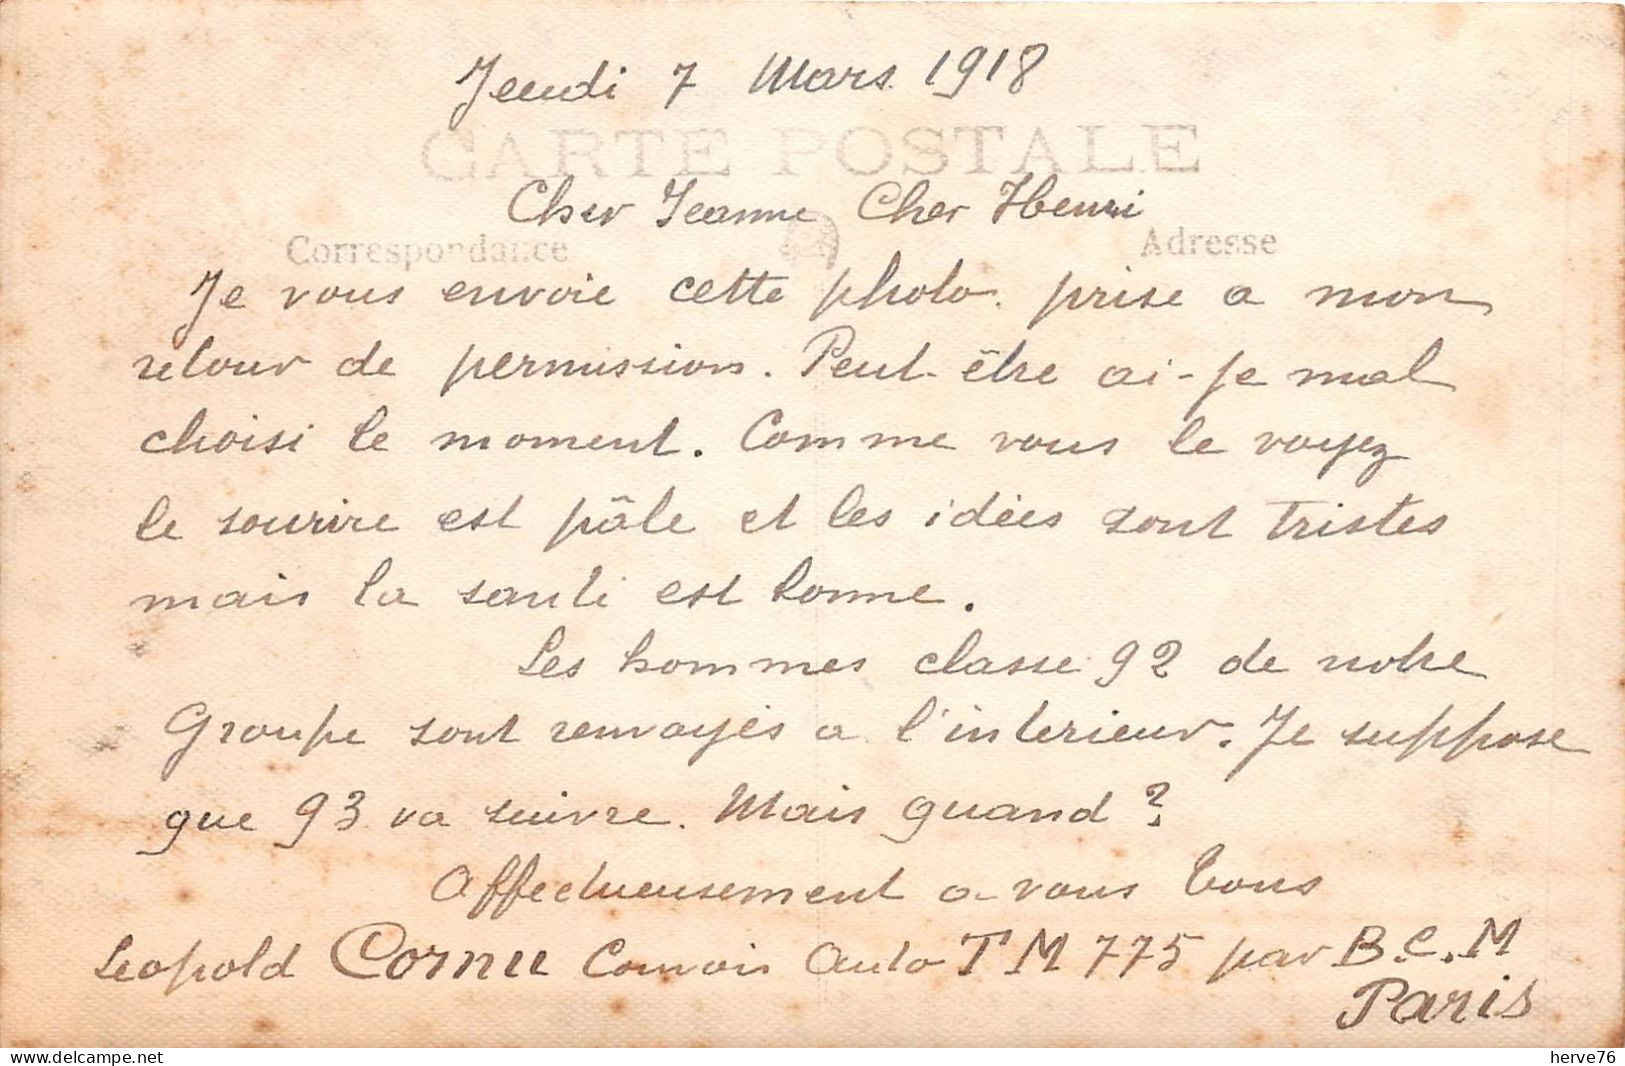 Jeudi 7 Mars 1918
CARTE POSTALE
Cher Jeanne Cher Henri
Correspondance
Adresse
Je vous envoie cette photo. prise a mon
retour de permission. Peut-être ai-je mal
choisi le moment. Comme vous le voyez
le sourire est pâle et les idées sont tristes
mais la santé est bonne.
Les hommes classe 92 de notre
Groupe sont renvoyés a l'interieur. Je suppose
que 93 va suivre. Mais quand ?
Affectueusement a vous tous
Leopold Cornu Convois Auto TM 775 par B.C.M
Paris
delcampe.net
herve76